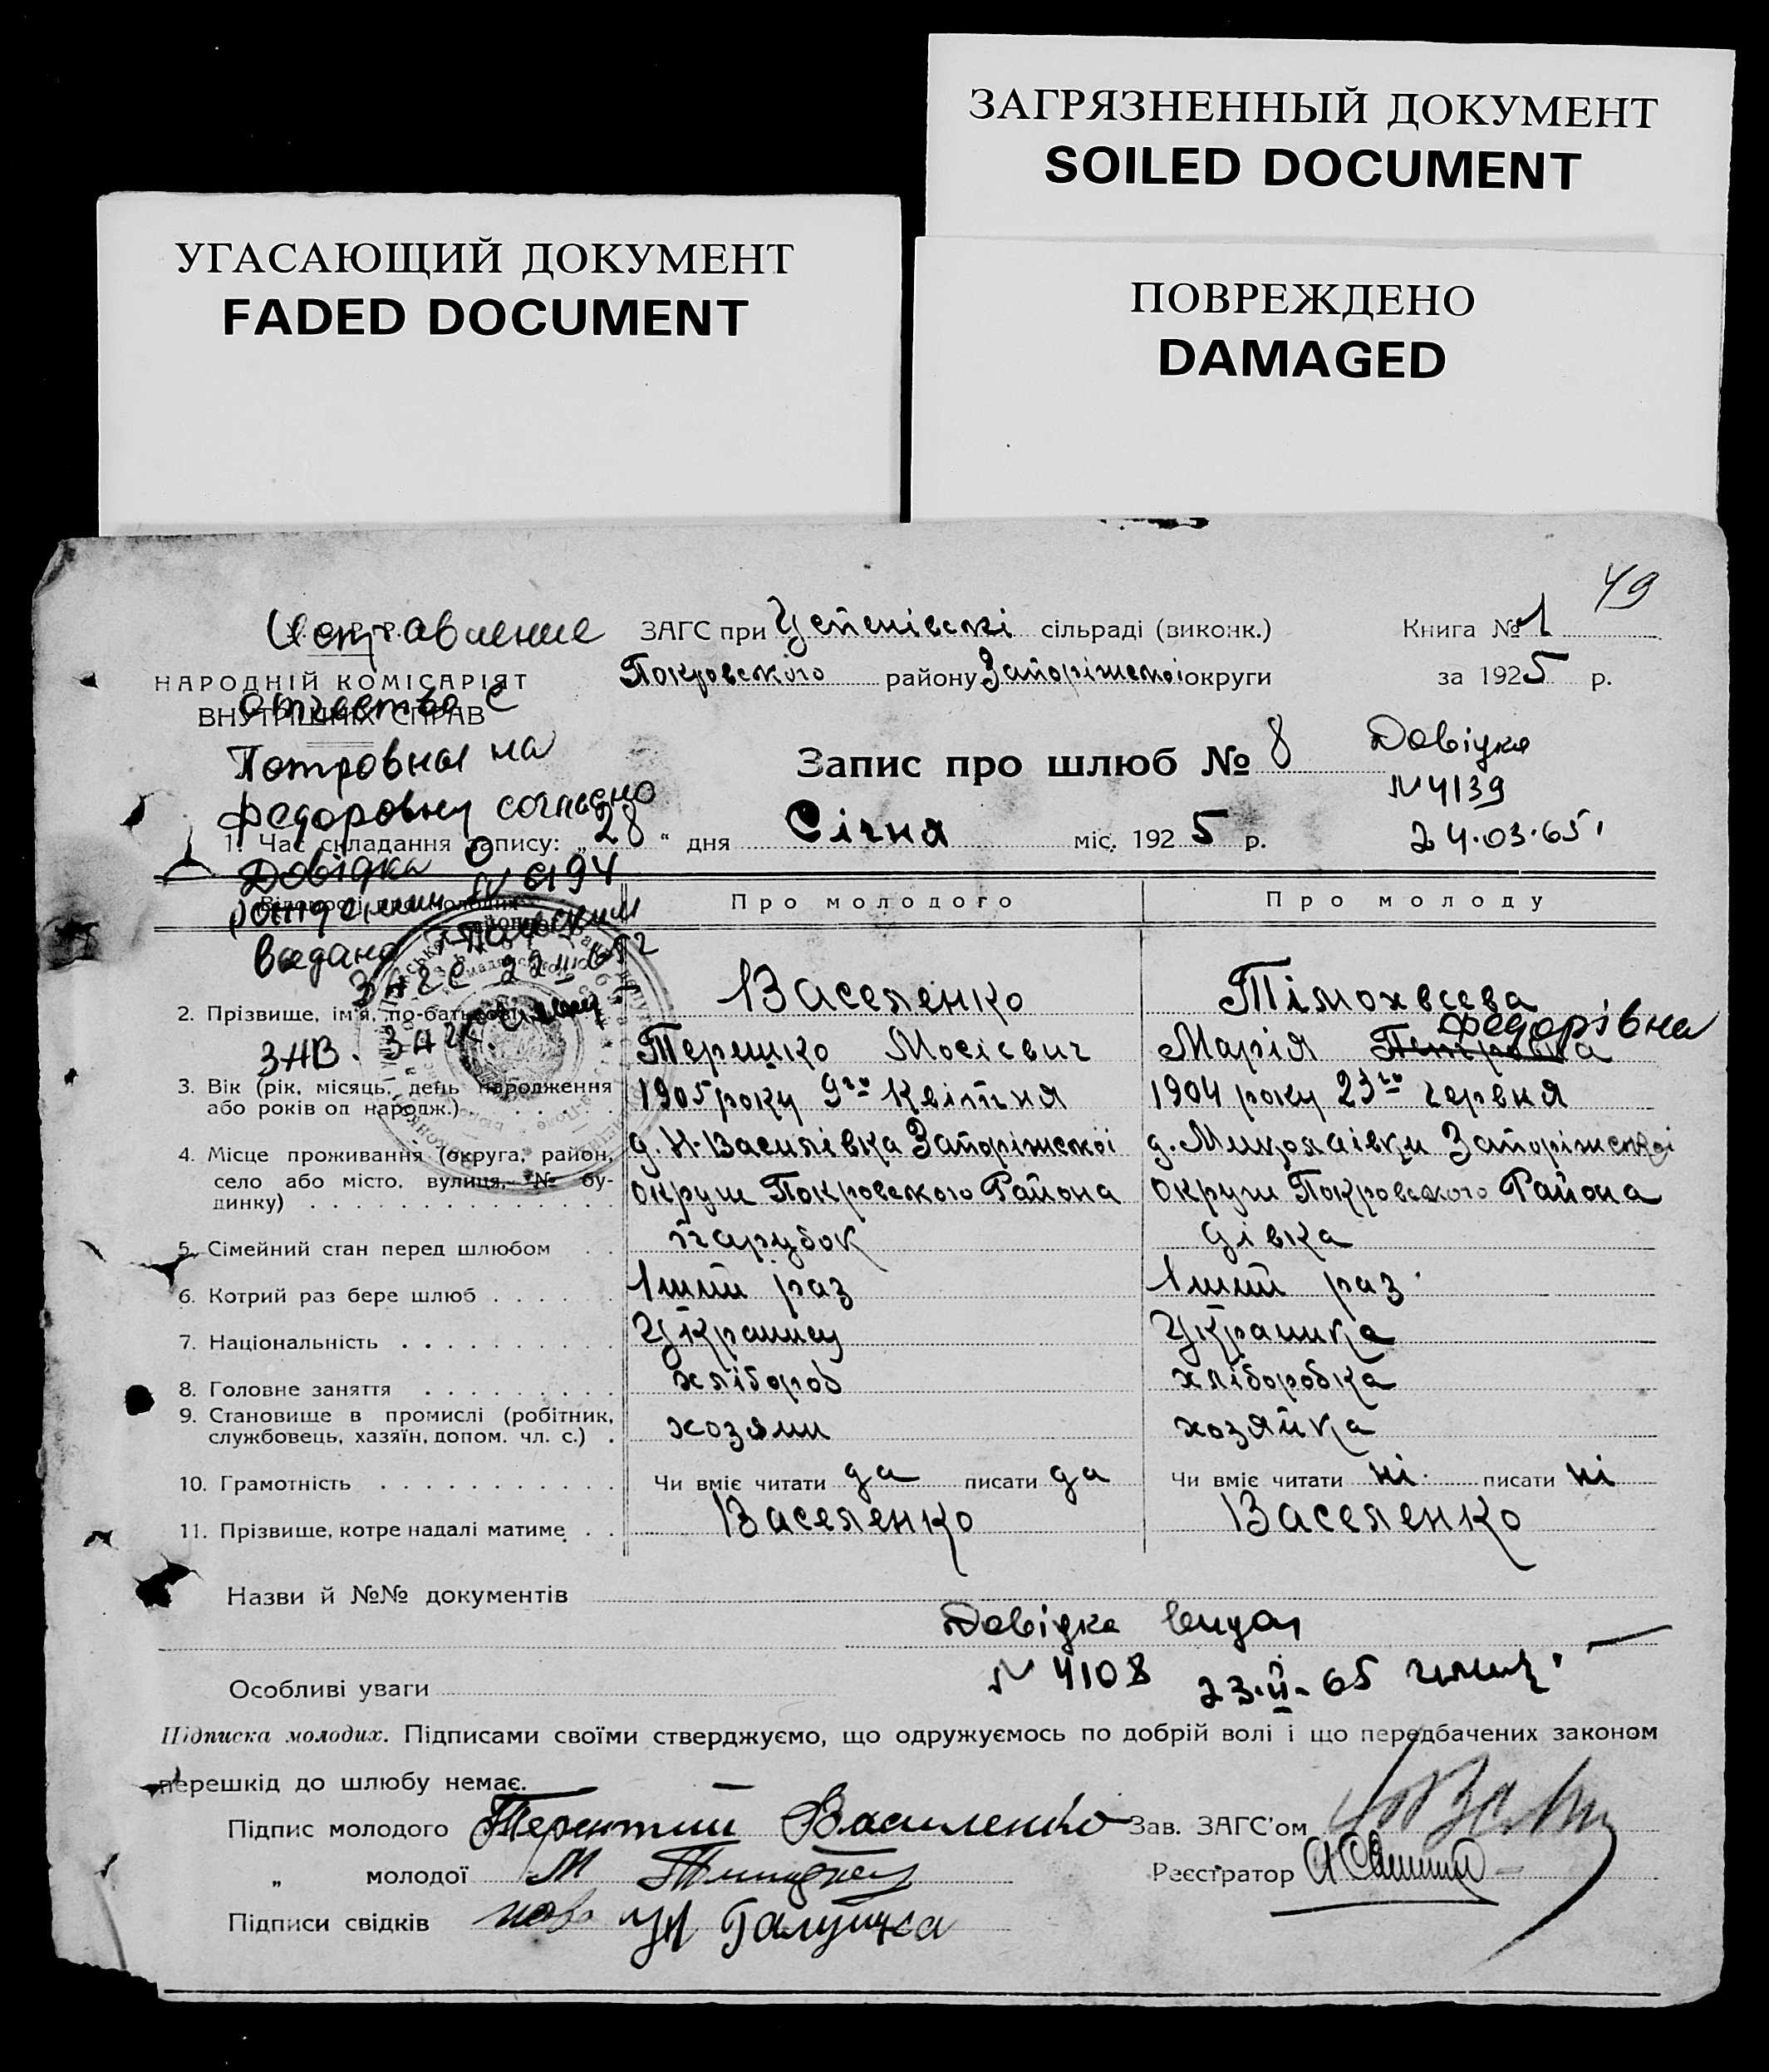 ЗАГРЯЗНЕННЫЙ ДОКУМЕНТ
SOILED DOCUMENT
УГАСАЮЩИЙ ДОКУМЕНТ
FADED DOCUMENT
ПОВРЕЖДЕНО
DAMAGED
49
Исправление
отчества с
Петровны на
Федоровну согласно
Довідка о
рождении N 6194
ЗАГС 22
Зав. ЗАГС
НАРОДНІЙ КОМІСАРІЯТ
ВНУТРІШНІХ СПРАВ
ЗАГС при Успенівські сільраді (виконк.)
Книга № 1
Покровського району Запоріжської округи
за 1925 р.
Запис про шлюб № 8
Довідка
N 4139
24.03.65
1. Час складання запису: „28“ дня Січня міс. 1925 р.
Про молодого
Про молоду
2. Прізвище, ім'я, по-батькові
Васеленко
Терешко Мосієвич
Тімохвєєва
Федорівна
Марія Петровна
3. Вік (рік, місяць, день народження
або років од народж.)
1905 року 9го Квітня
1904 року 23го червня
4. Місце проживання (округа, район,
село або місто, вулиця, № бу-
динку)
д. Н-Василівка Запоріжської
округи Покровского Района
д. Миколаівки Запоріжскої
округи Покровского Района
5. Сімейний стан перед шлюбом
парубок
дівка
6. Котрий раз бере шлюб
1ший раз
1ший раз
7. Національність
Українец
Українка
8. Головне заняття
хлібороб
хліборобка
9. Становище в промислі (робітник,
службовець, хазяїн, допом. чл. с.)
хозяин
хозяйка
10. Грамотність
Чи вміє читати да писати да
Чи вміє читати ні писати ні
11. Прізвище, котре надалі матиме
Васеленко
Васеленко
Назви й №№ документів
Довідка видан
N 4108 23.II.65
Особливі уваги
Підписка молодих. Підписами своїми стверджуємо, що одружуємось по добрій волі і що передбачених законом
перешкід до шлюбу немає.
Підпис молодого Терентий Василенко
Зав. ЗАГС'ом
„ молодої М
Реєстратор
Підписи свідків Галушка